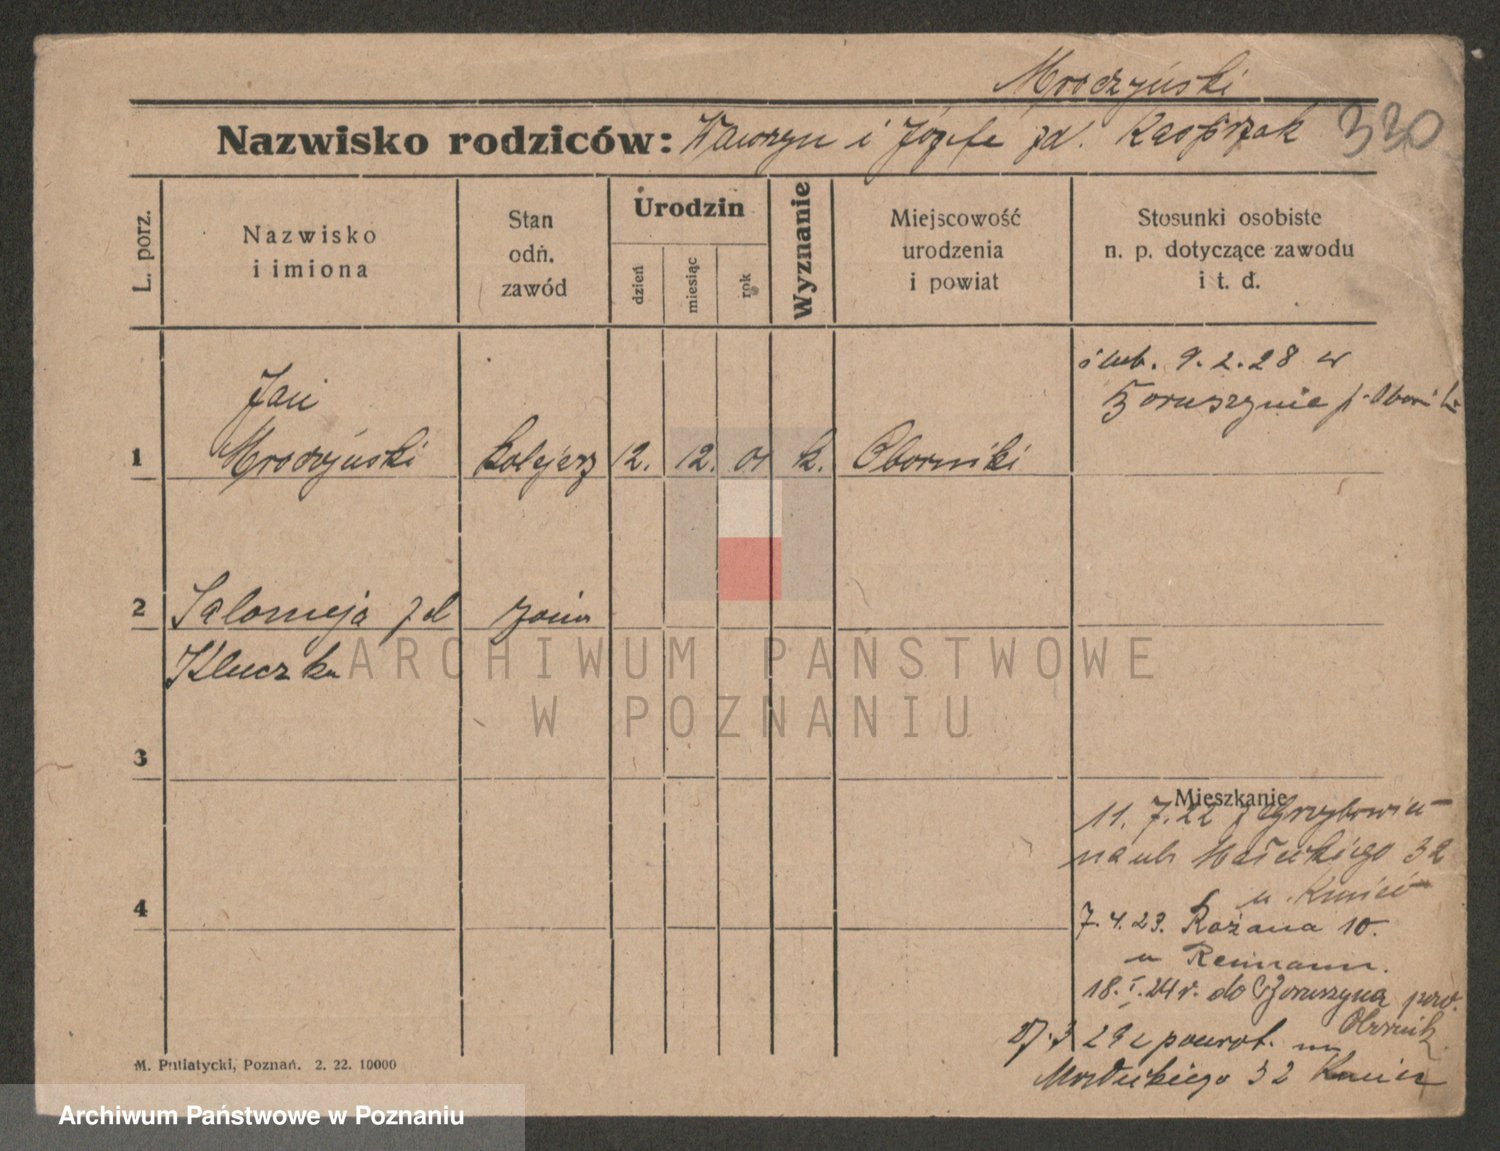 Mroczyński
Nazwisko rodziców: Wawrzyn i Józefa zd. Kasprzak 330
L. porz.
Nazwisko
i imiona
Stan
odn.
zawód
Urodzin
dzień
miesiąc
rok
Wyznanie
Miejscowość
urodzenia
i powiat
Stosunki osobiste
n. p. dotyczące zawodu
i t. d.
ślub. 9.2.28 w
p. Obornik
Jan
1 Mroczyński Kolejarz 12. 12. 01 k. Oborniki
2 Salomeja zd żona
Kluczka
3
4
Mieszkanie
11. 7. 22 z Grzybowia
na ul. 32
u
7. 4. 23. Różana 10.
u Reimann.
18. I. 24 r. do Boruszyna pow.
Obornik
3 29 z powrot. na
32
M. Putiatycki, Poznań. 2. 22. 10000
ARCHIWUM PAŃSTWOWE
W POZNANIU
Archiwum Państwowe w Poznaniu